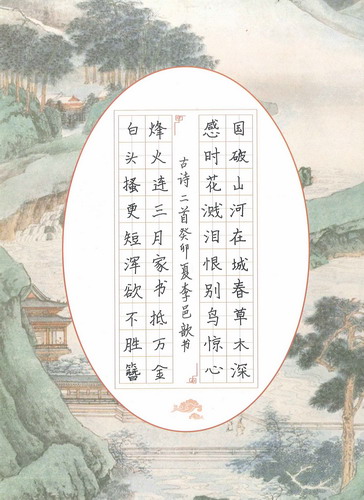 国破山河在城春草木深
感时花溅泪恨别鸟惊心
古诗二首癸卯夏李邑歆书
烽火连三月家书抵万金
白头搔更短浑欲不胜簪